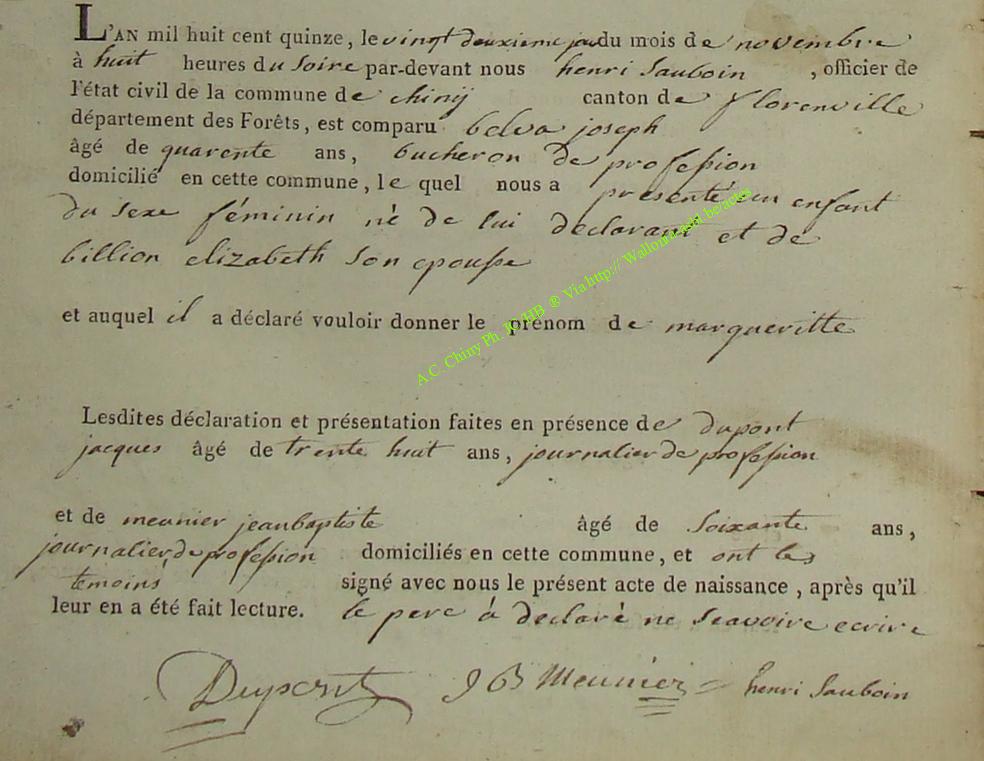 L'AN mil huit cent quinze, le vingt deuxieme jou du mois de novembre
à huit heures du Soire par-devant nous henri Sauboin , officier de
l'état civil de la commune de chinij canton de florenville
département des Forêts, est comparu belva joseph
âgé de quarente ans, bucheron de profession
domicilié en cette commune, le quel nous a présenté un enfant
du sexe féminin né de lui declarant et de
billion elizabeth son epousse
et auquel il a déclaré vouloir donner le prénom de margueritte
Lesdites déclaration et présentation faites en présence de dupont
jacques âgé de trente huit ans, journalier de profession
et de meunier jeanbaptiste âgé de soixante ans,
journalier de profession domiciliés en cette commune, et ont les
temoins signé avec nous le présent acte de naissance, après qu'il
leur en a été fait lecture. le pere à declaré ne scavoire ecrire
Dupont J B Meunier henri Sauboin
A.C. Chiny Ph. ® Via http://